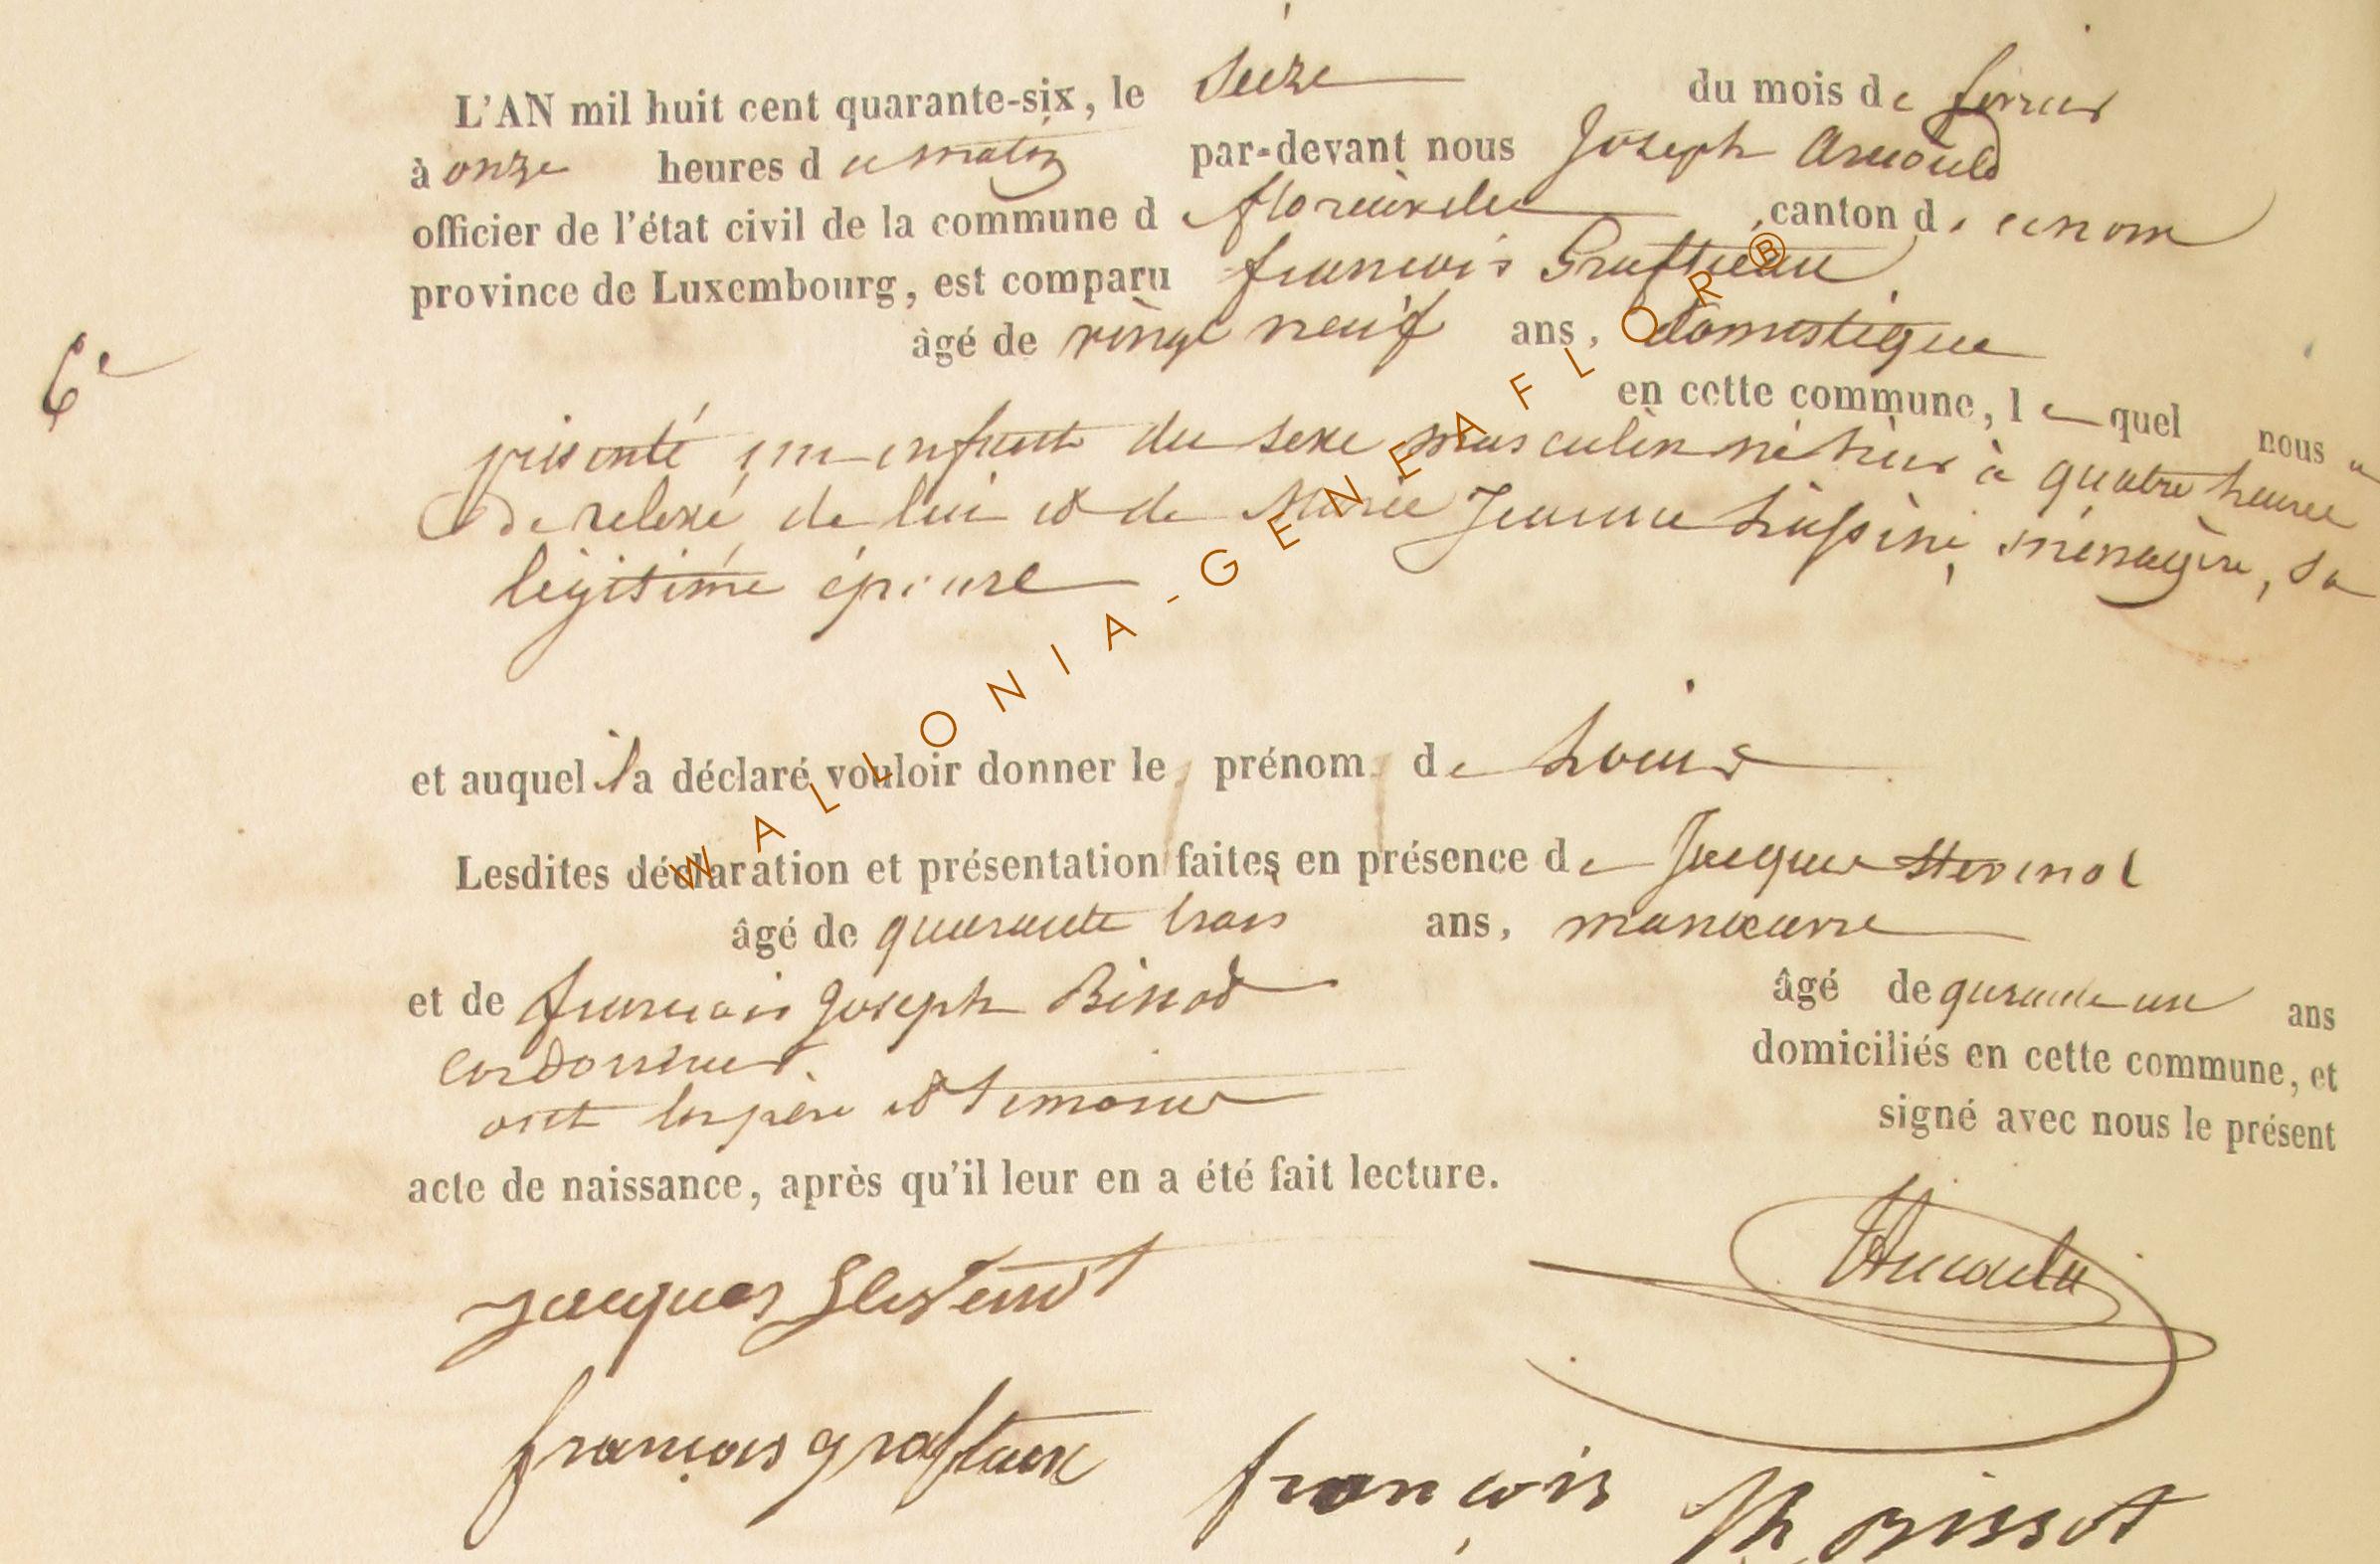 L'AN mil huit cent quarante-six, le Seize du mois de fevrier
à onze heures d u matin par-devant nous Joseph Arnould
officier de l'état civil de la commune d e florenville, canton d e ce nom
province de Luxembourg, est comparu françois
âgé de vingt neuf ans, domestique
6e
en cette commune, l e quel nous a
présenté un enfant du sexe masculin né hier à quatre heures
de relevé, de lui et de Marie Jeanne ménagère, sa
légitime épouse
et auquel il a déclaré vouloir donner le prénom de Louis
Lesdites déclaration et présentation faites en présence de Jacques
âgé de quarante trois ans, manœuvre
et de francois Joseph âgé de quarante un ans
cordonnier. domiciliés en cette commune, et
ont les père et temoins signé avec nous le présent
acte de naissance, après qu'il leur en a été fait lecture.
Jacques Arnould
françois graftiaux françois
WALLONIA-GENEAFLOR®